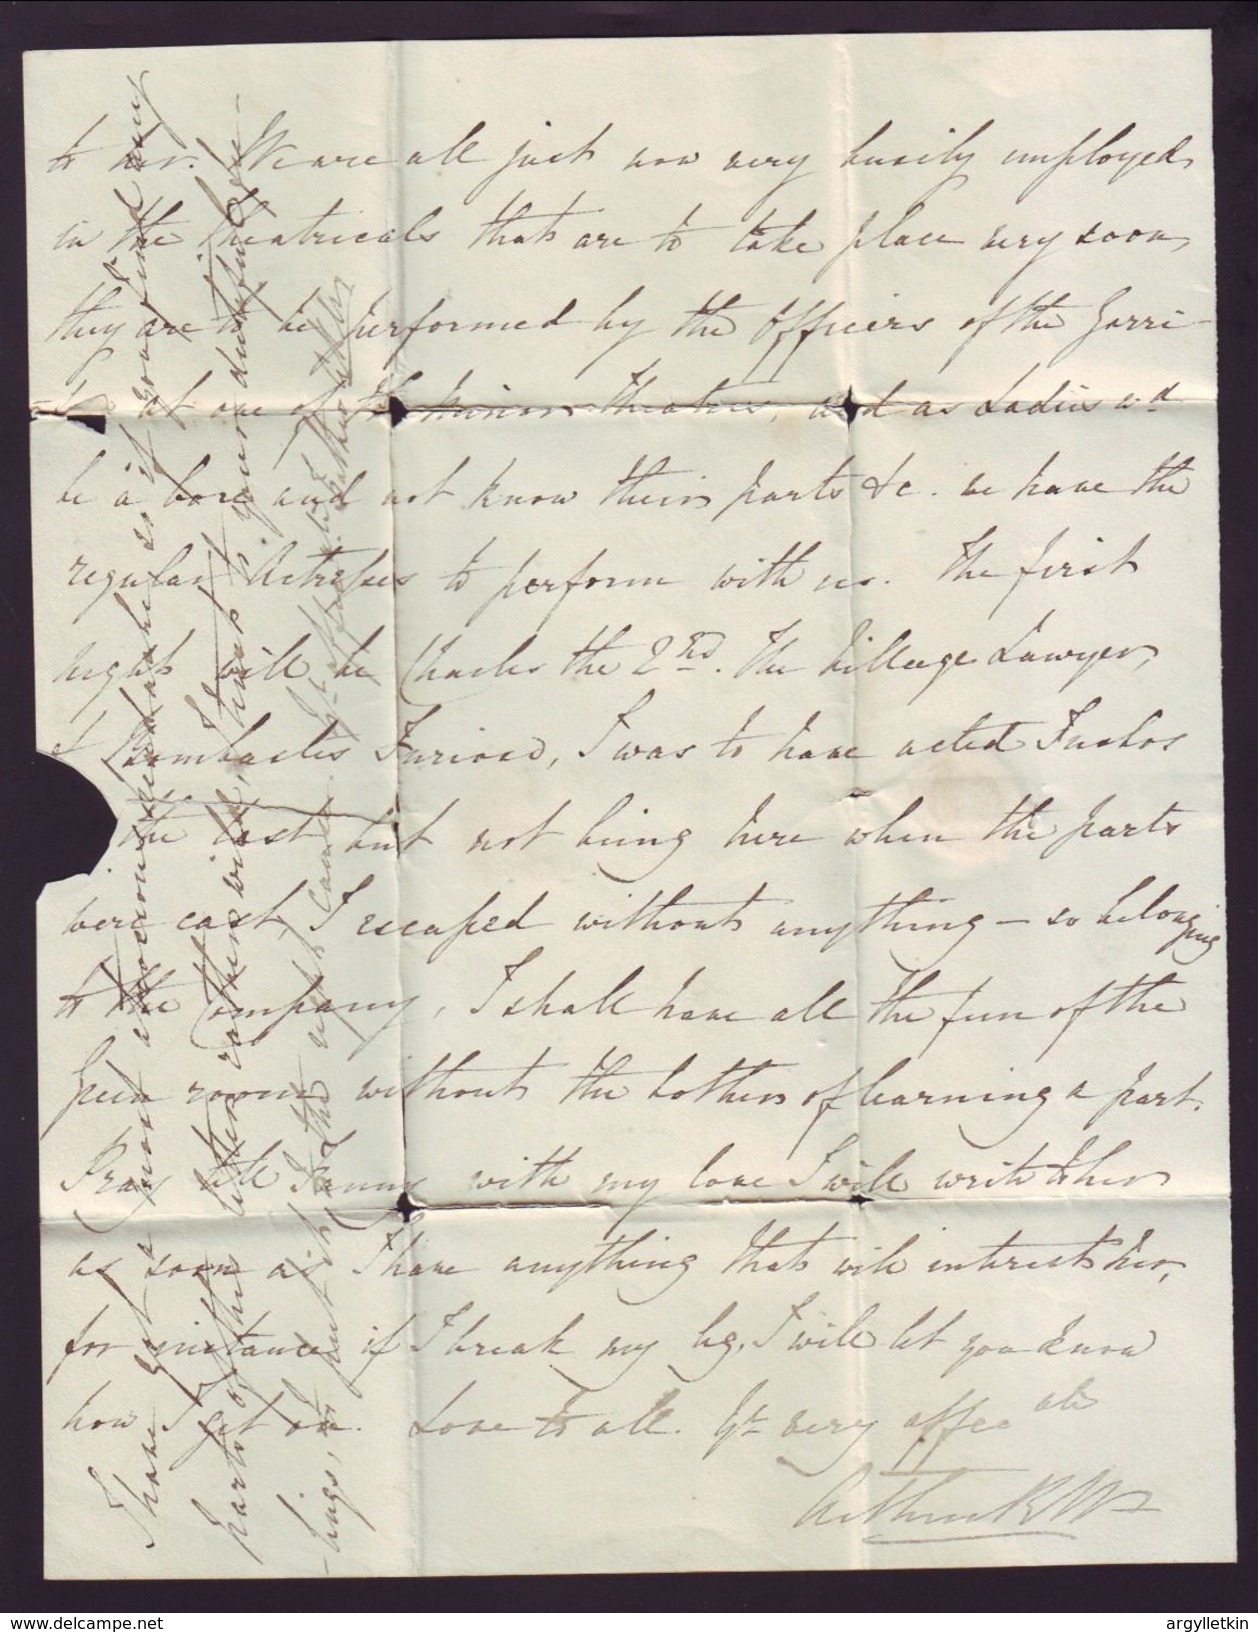 to her. We are all just now very busily employed
in the Theatricals that are to take place very soon,
they are to be performed by the Officers of the Garri-
at one of the minor Theatres, and as Ladies wd
be a bore and not know their parts &c. we have the
regular Actresses to perform with us. The first
night will be Charles the 2nd. The Village Lawyer,
& Bombastes Furioso, I was to have acted Fusbos
the last but not being here when the parts
were cast, I escaped without anything - so belonging
to the Company, I shall have all the fun of the
Green room without the bother of learning a part.
Pray tell Fanny with my love I will write to her
as soon as I have anything that will interest her,
for instance if I break my leg, I will let you know
how I get on. Love to all. Yr very affecate
Arthur R W
I have got a most atrocious headache so if you find any
parts of this letter rather wild, think it is your dutiful ne-
-phew's
argylletkin